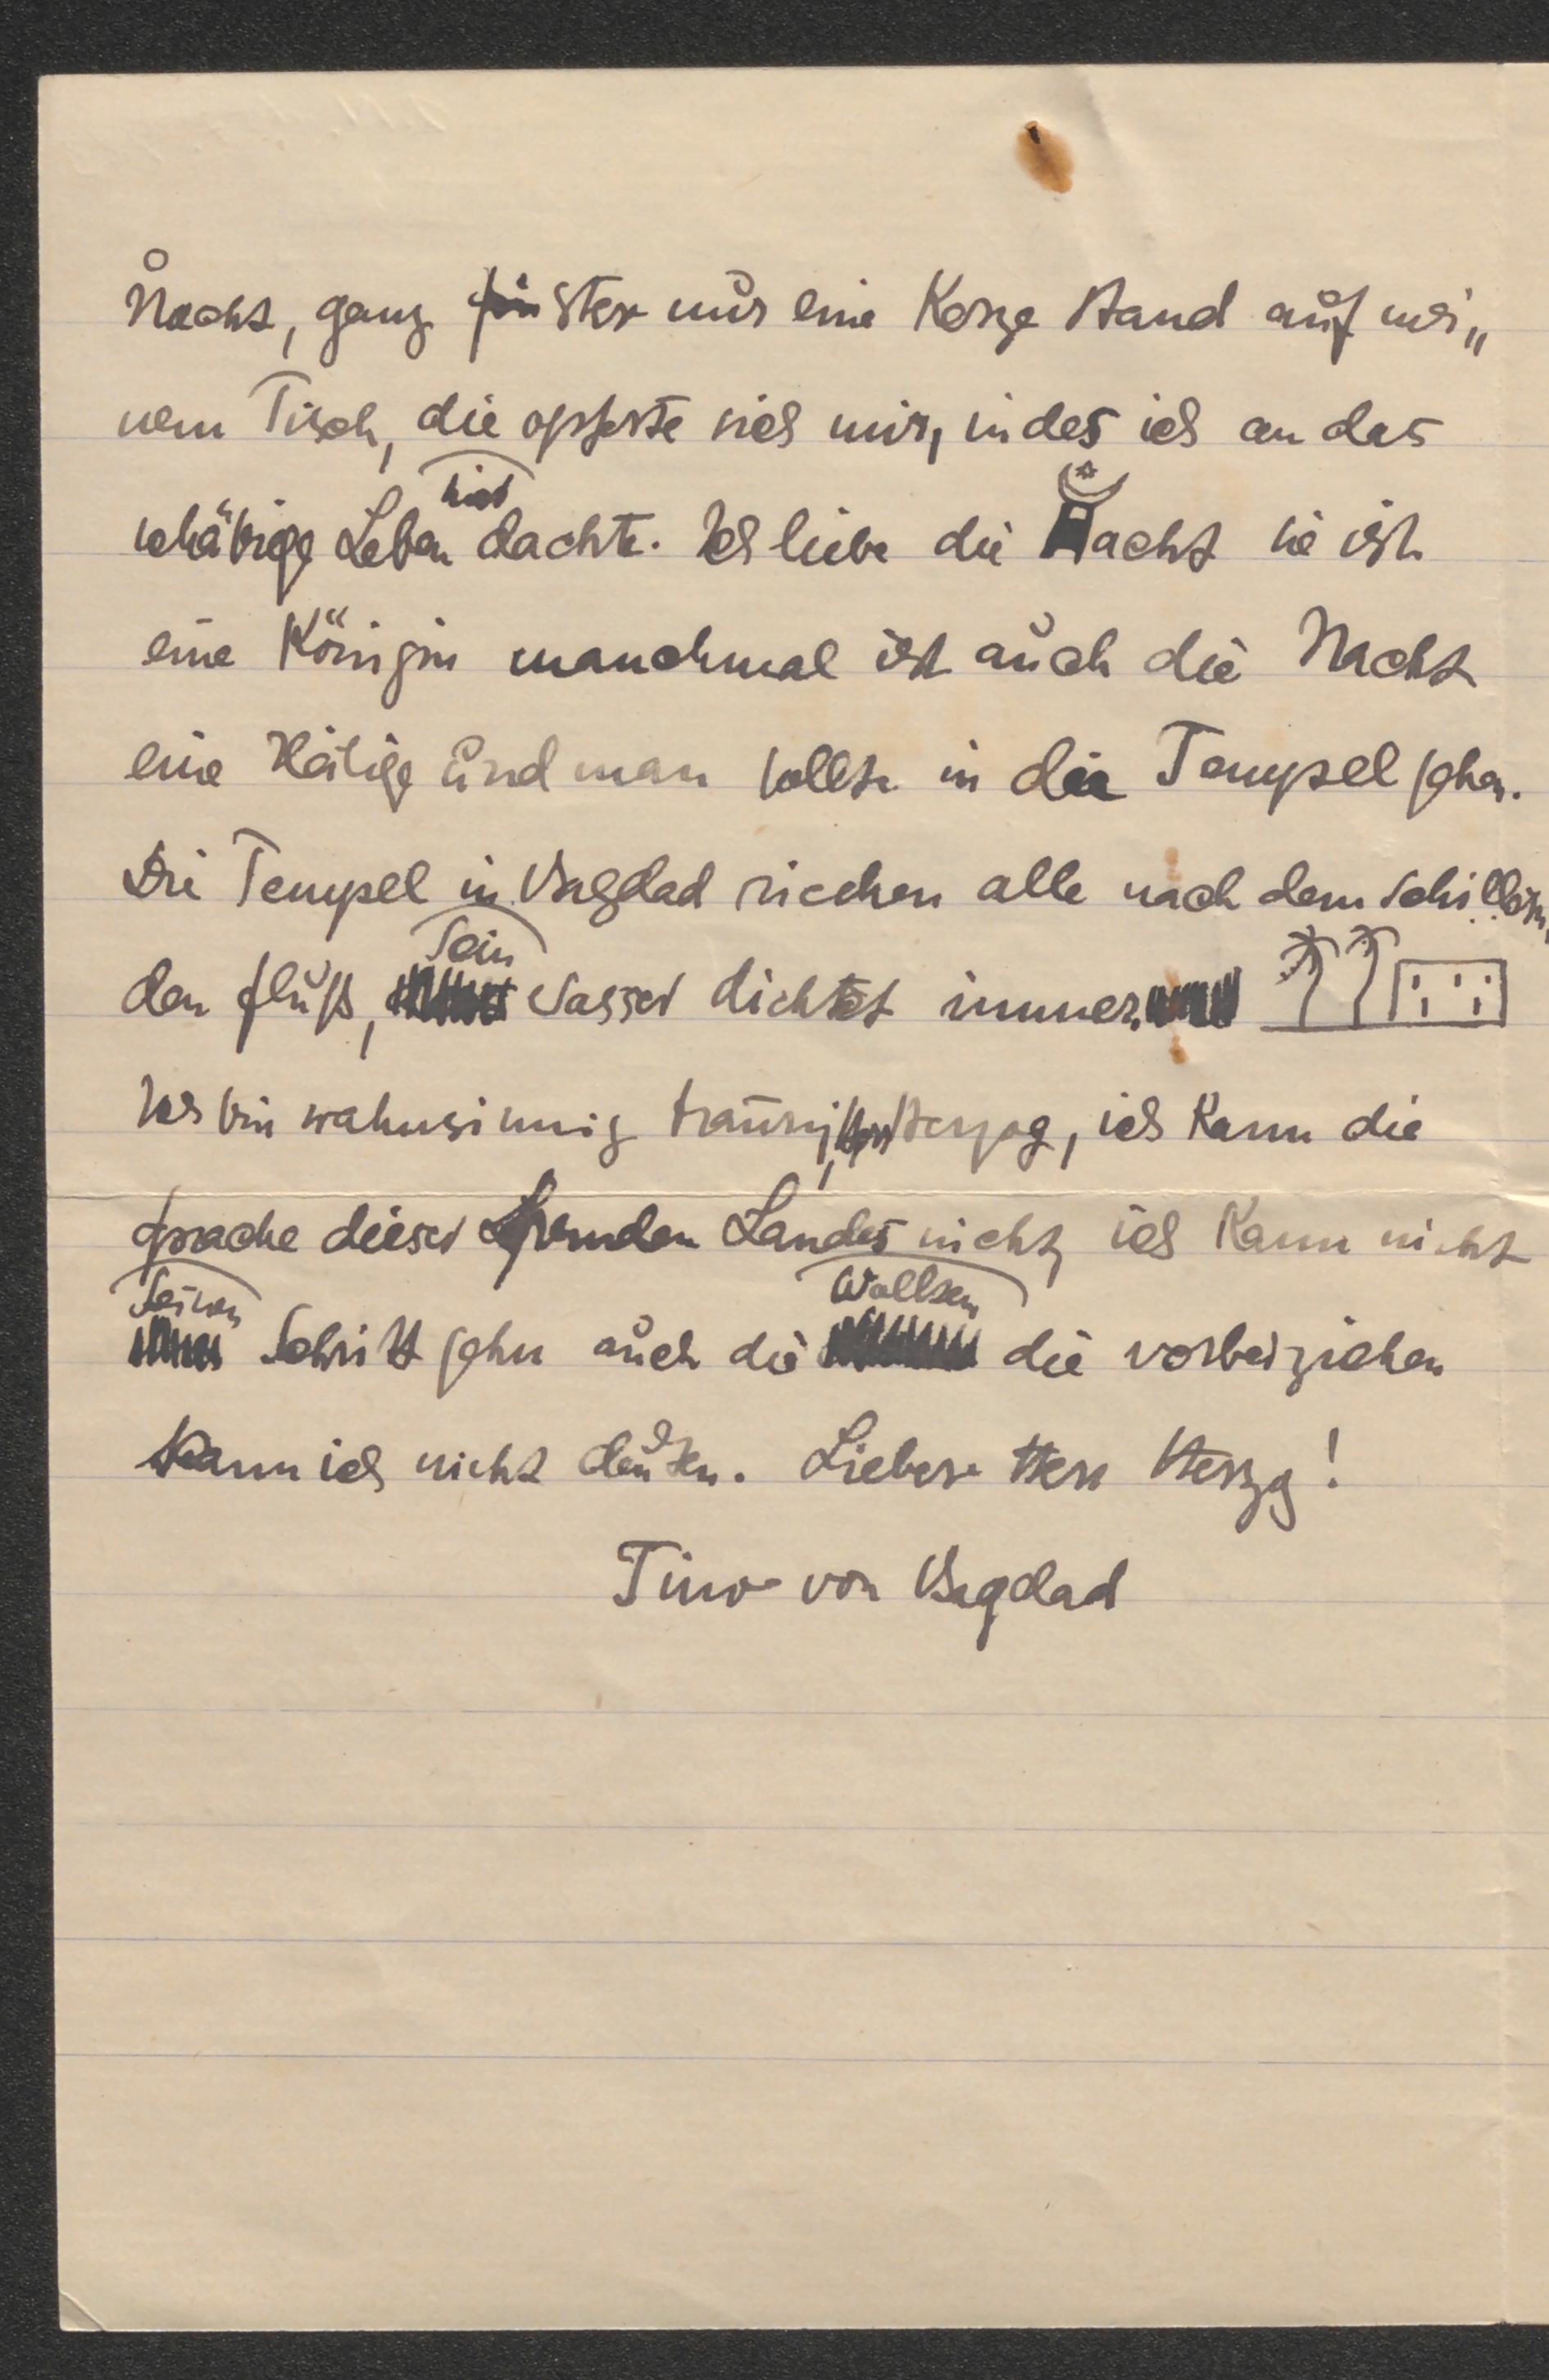 Nacht, ganz finster nur eine Kerze stand auf mei„
nem Tisch, die opferte sich mir, indes ich an das
schäbige Leben hier dachte. Ich liebe die Nacht sie ist
eine Königin manchmal ist auch die Nacht
eine Heilige und man sollte in die Tempel gehen.
Die Tempel in Bagdad riechen alle nach dem schillern„
den Fluß, Sein Wasser dichtet immer.
Ich bin wahnsinnig traurig, Herzog, ich kann die
Sprache dieses fremden Landes nicht, ich kann nicht
Seinen Schritt gehn auch die Wolken die vorbeiziehen
kann ich nicht deuten. Lieber Herr Herzog!
Tino von Bagdad